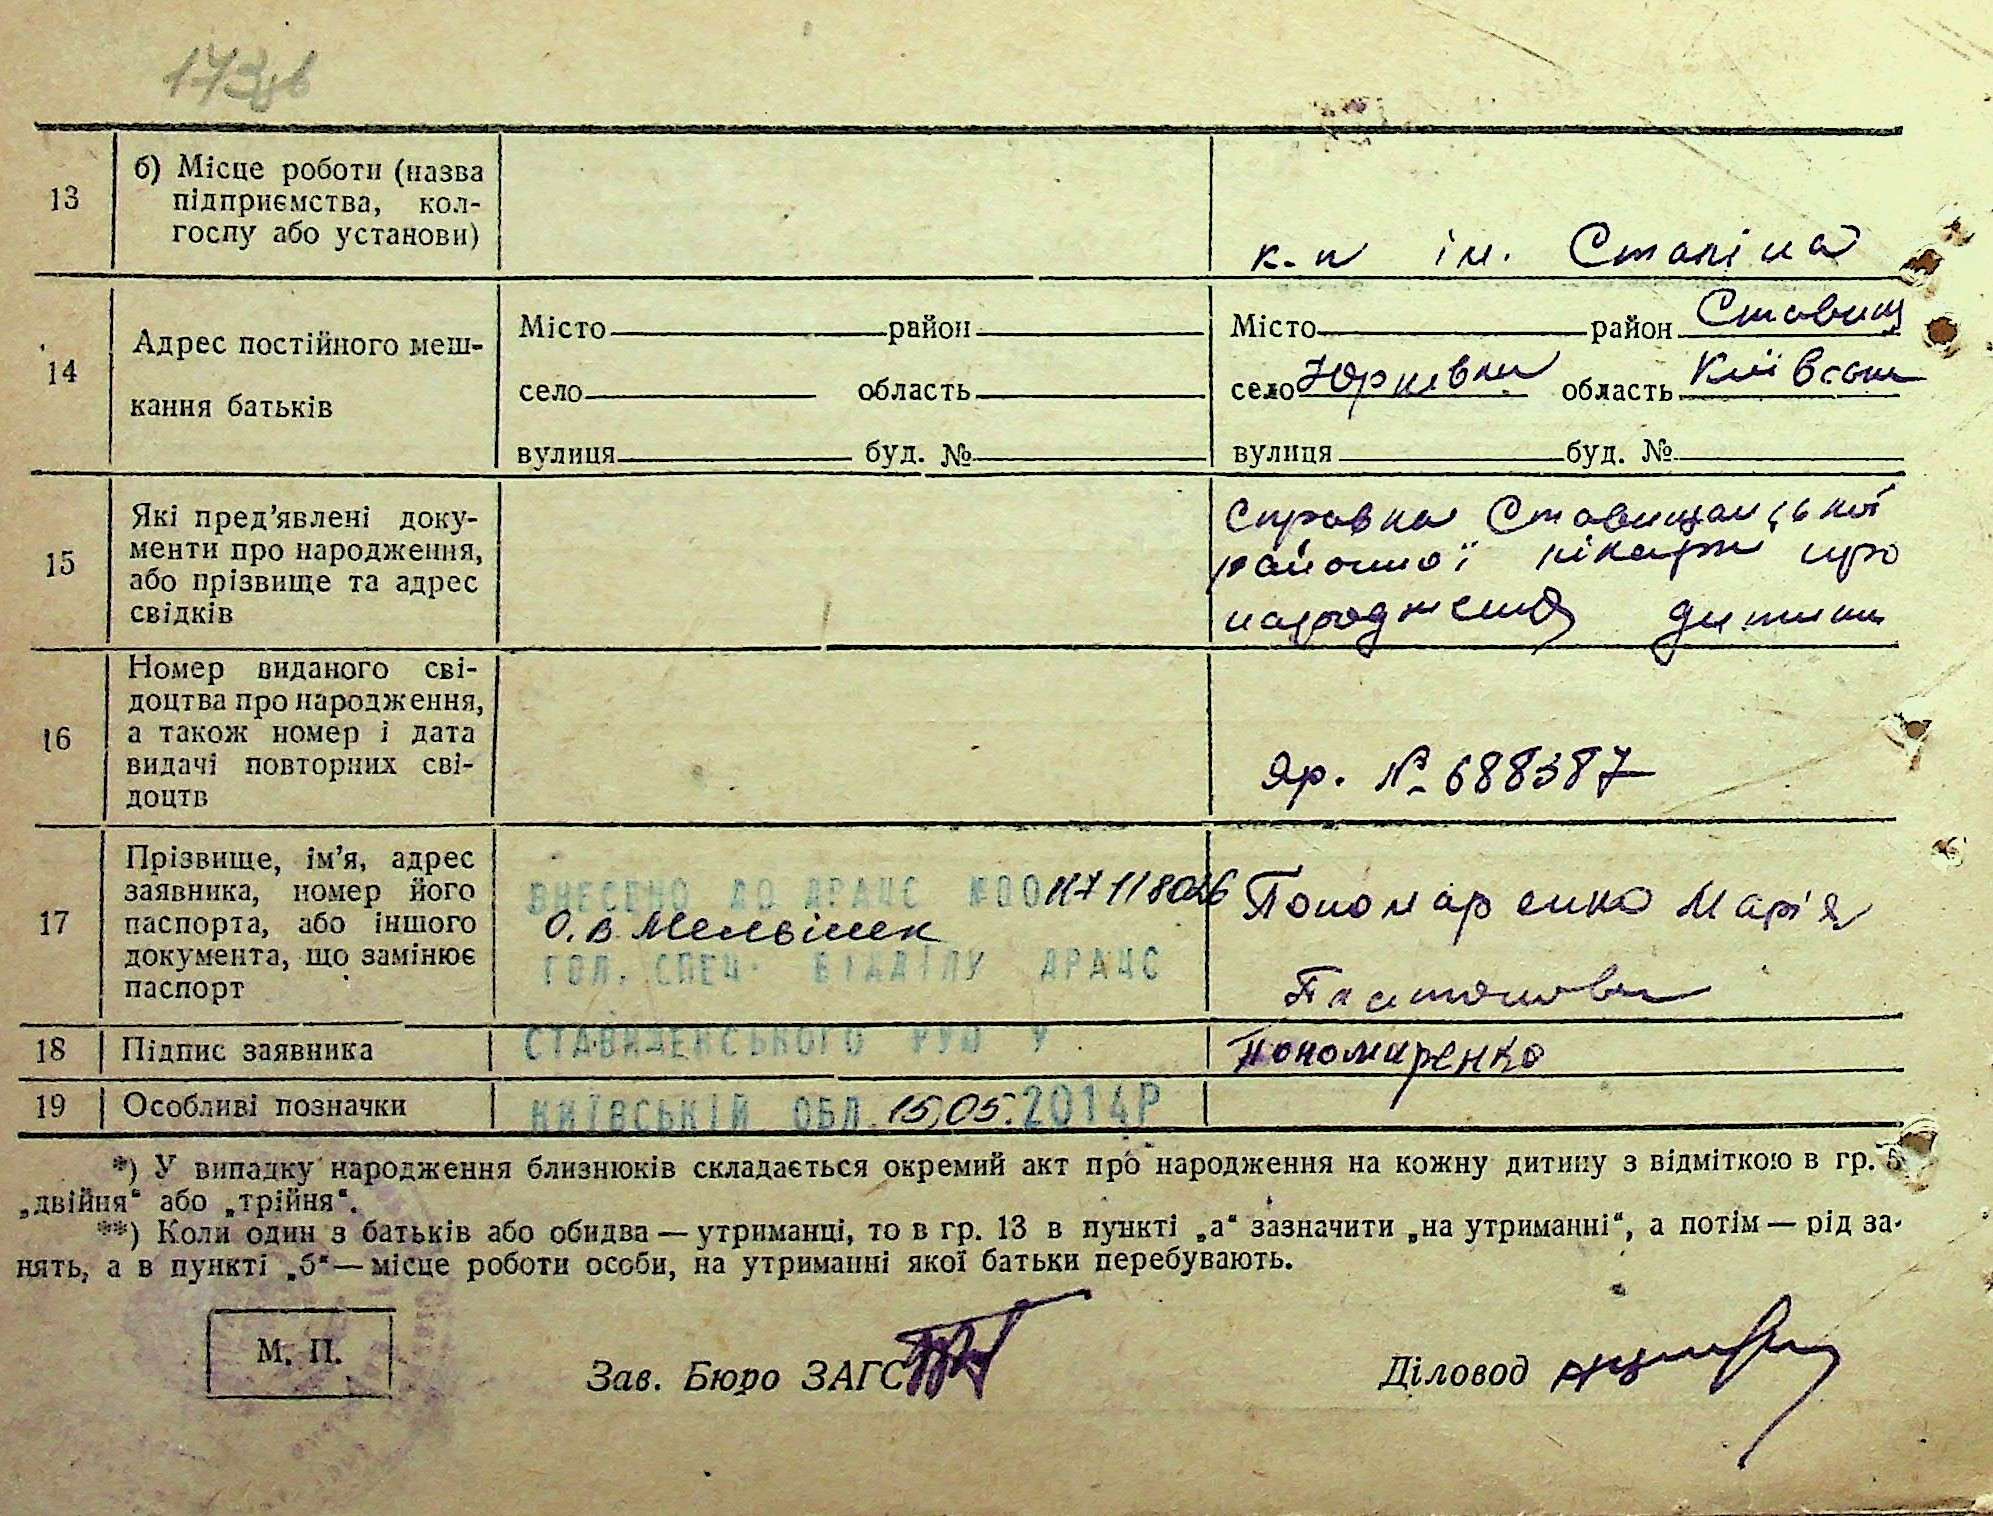 173зв
13
б) Місце роботи (назва
підприємства, кол-
госпу або установи)
к-п ім. Сталіна
14
Адрес постійного меш-
кання батьків
Місто район
село область
вулиця буд. №
Місто район Ставищ
село Юрківка область Київська
вулиця буд. №
15
Які пред'явлені доку-
менти про народження,
або прізвище та адрес
свідків
Справка Ставищанської
районної лікарні про
народження дитини
16
Номер виданого сві-
доцтва про народження,
а також номер і дата
видачі повторних сві-
доцтв
Яр. № 688387
17
Прізвище, ім'я, адрес
заявника, номер його
паспорта, або іншого
документа, що замінює
паспорт
ВНЕСЕНО ДО ДРАЦС №00117118026
О.В.
ГОЛ. СПЕЦ. ВІДДІЛУ ДРАЦС
Пономаренко Марія
Платонівна
18
Підпис заявника
СТАВИЩЕНСЬКОГО РУЮ У
Пономаренко
19
Особливі позначки
КИЇВСЬКІЙ ОБЛ. 15.05.2014Р
*) У випадку народження близнюків складається окремий акт про народження на кожну дитину з відміткою в гр. 5
„двійня“ або „трійня“.
**) Коли один з батьків або обидва — утриманці, то в гр. 13 в пункті „а“ зазначити „на утриманні“, а потім — рід за-
нять, а в пункті „б“ — місце роботи особи, на утриманні якої батьки перебувають.
М. П.
Зав. Бюро ЗАГС
Діловод